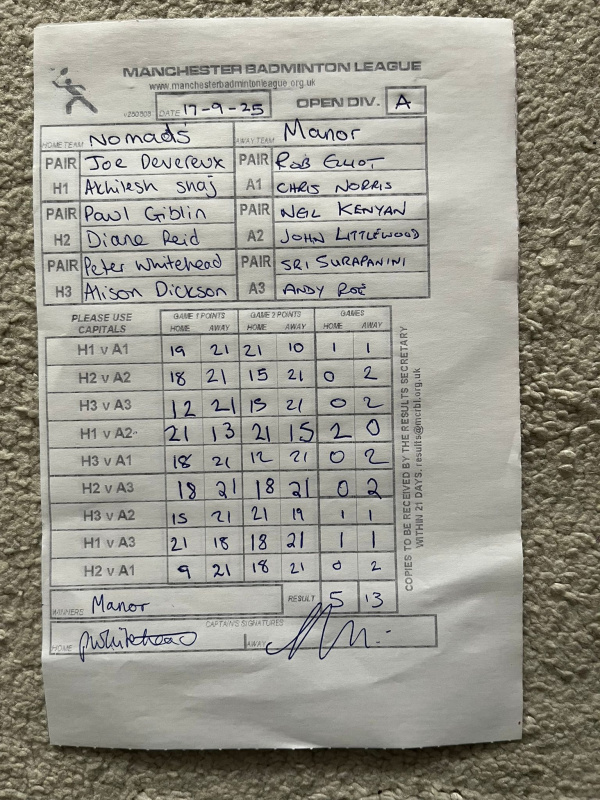 MANCHESTER BADMINTON LEAGUE
www.manchesterbadmintonleague.org.uk
v250808 DATE 17-9-25 OPEN DIV. A
HOME TEAM Nomads AWAY TEAM Manor
PAIR Joe Devereux PAIR ROB ELLIOT
H1 Akhilesh Shaj A1 CHRIS NORRIS
PAIR Paul Giblin PAIR NEIL KENYAN
H2 Diane Reid A2 JOHN LITTLEWOOD
PAIR Peter Whitehead PAIR SRI SURAPANINI
H3 Alison Dickson A3 ANDY ROE
PLEASE USE CAPITALS GAME 1 POINTS GAME 2 POINTS GAMES
HOME AWAY HOME AWAY HOME AWAY
H1 v A1 19 21 21 10 1 1
H2 v A2 18 21 15 21 0 2
H3 v A3 12 21 15 21 0 2
H1 v A2 21 13 21 15 2 0
H3 v A1 18 21 12 21 0 2
H2 v A3 18 21 18 21 0 2
H3 v A2 15 21 21 19 1 1
H1 v A3 21 18 18 21 1 1
H2 v A1 9 21 18 21 0 2
WINNERS Manor RESULT 5 13
CAPTAIN'S SIGNATURES
HOME PWhitehead AWAY
COPIES TO BE RECEIVED BY THE RESULTS SECRETARY
WITHIN 21 DAYS. results@mcrbl.org.uk